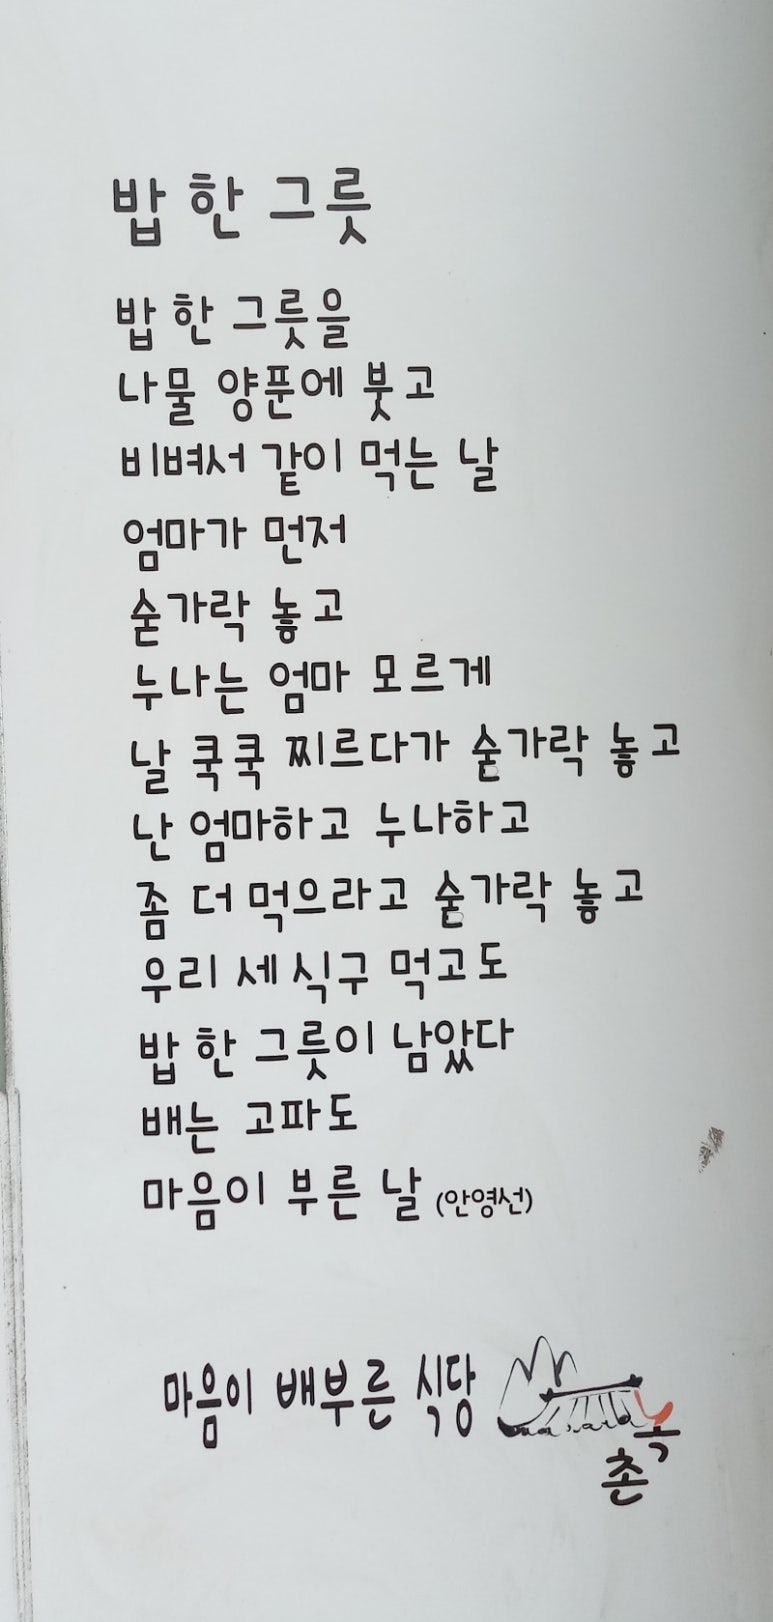 밥 한 그릇
밥 한 그릇을
나물 양푼에 붓고
비벼서 같이 먹는 날
엄마가 먼저
숟가락 놓고
누나는 엄마 모르게
날 쿡쿡 찌르다가 숟가락 놓고
난 엄마하고 누나하고
좀 더 먹으라고 숟가락 놓고
우리 세 식구 먹고도
밥 한 그릇이 남았다
배는 고파도
마음이 부른 날 (안영선)
마음이 배부른 식당
촌